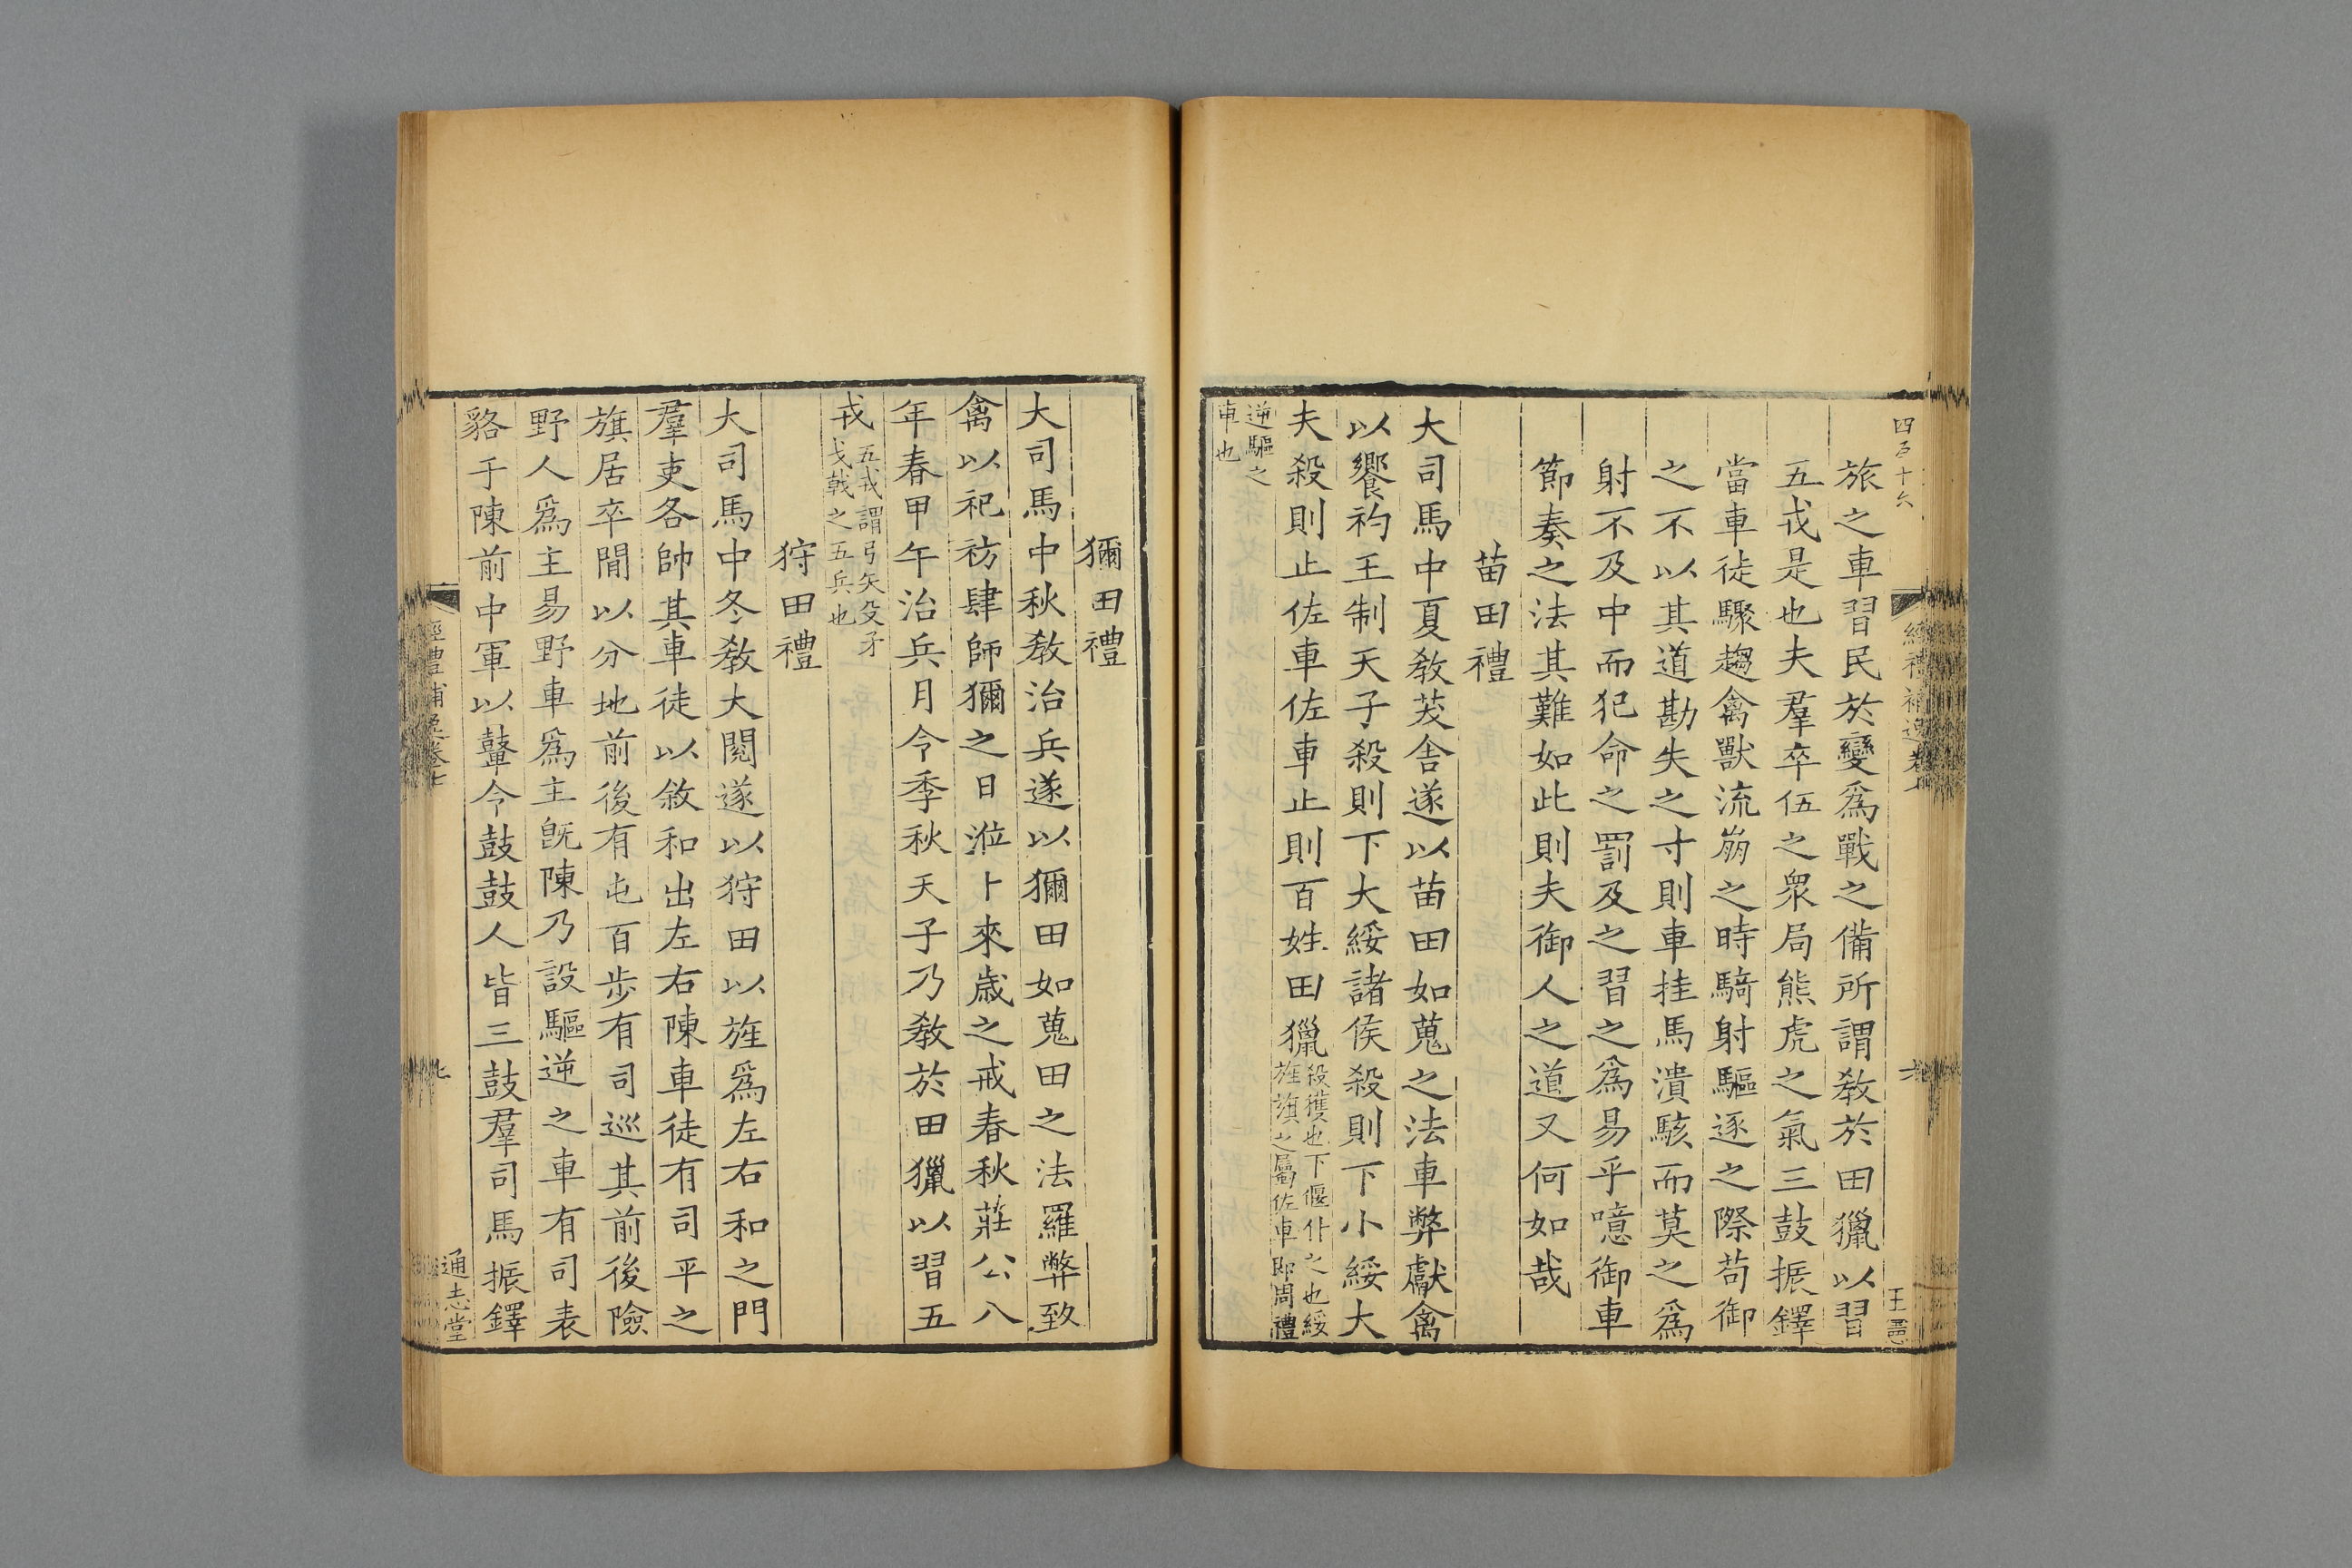 四百十六
經禮補逸卷七
六
王
旅之車習民於變爲戰之備所謂教於田獵以習
五戎是也夫羣卒伍之衆局熊虎之氣三鼓振鐸
當車徒驟趨禽獸流崩之時騎射驅逐之際苟御
之不以其道勘失之寸則車挂馬潰駭而莫之爲
射不及中而犯命之罰及之習之爲易乎噫御車
節奏之法其難如此則夫御人之道又何如哉
苗田禮
大司馬中夏敎茇舍遂以苗田如蒐之法車弊獻禽
以饗礿王制天子殺則下大綏諸侯殺則下小綏大
夫殺則止佐車佐車止則百姓田獵殺獲也下偃仆之也綏
旌旗之屬佐車卽周禮
逆驅之
車也
獮田禮
大司馬中秋敎治兵遂以獮田如蒐田之法羅弊致
禽以祀祊肆師獮之日涖卜來歲之戒春秋莊公八
年春甲午治兵月令季秋天子乃敎於田獵以習五
戎五戎謂弓矢殳矛
戈戟之五兵也
狩田禮
大司馬中冬敎大閱遂以狩田以旌爲左右和之門
羣吏各帥其車徒以敘和出左右陳車徒有司平之
旗居卒閒以分地前後有屯百步有司巡其前後險
野人爲主易野車爲主旣陳乃設驅逆之車有司表
貉于陳前中軍以鼙令鼓鼓人皆三鼓羣司馬振鐸
經禮補逸卷七
七
通志堂